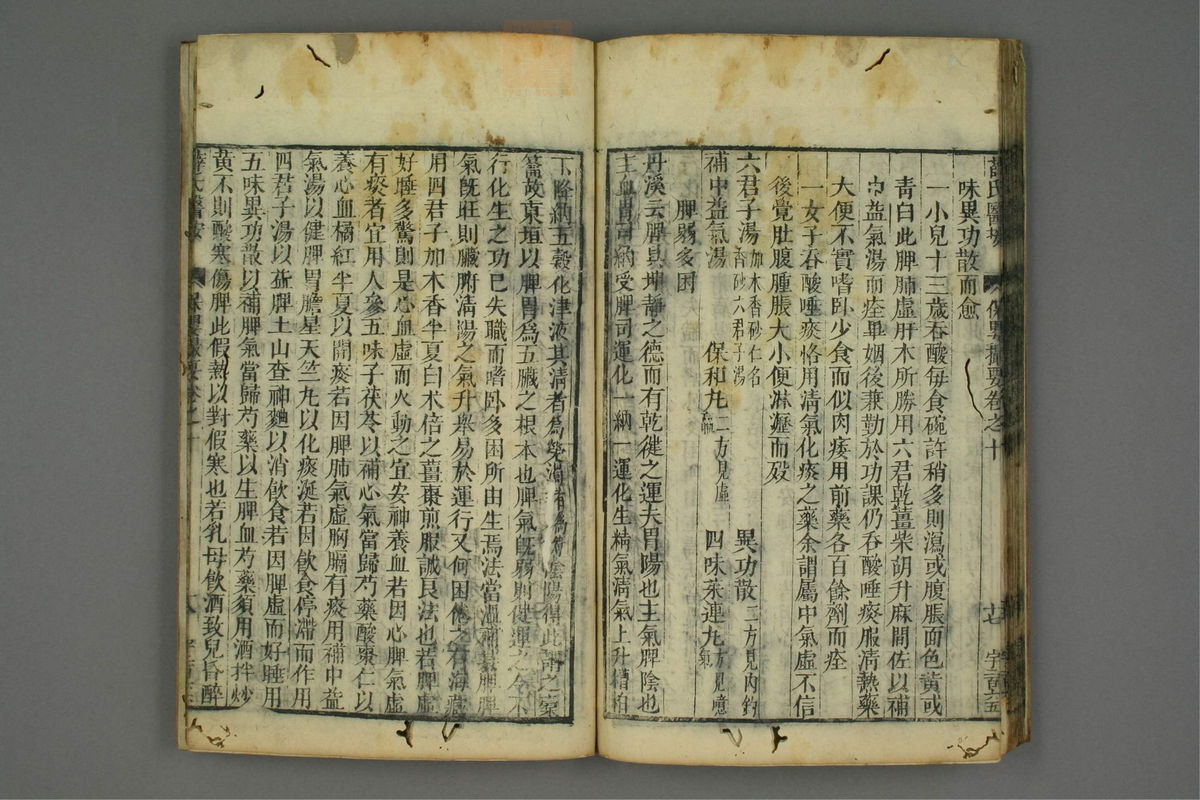 薛氏醫按 保嬰撮要卷之十
味異功散而愈
一小兒十三歲吞酸每食碗許稍多則瀉或腹脹面色黃或
青白此脾肺虛肝木所勝用六君乾薑柴胡升麻間佐以補
中益氣湯而痊畢姻後兼勤於功課仍吞酸唾痰服清熱藥
大便不實嗜臥少食而似肉痿用前藥各百餘劑而痊
一女子吞酸唾痰恪用清氣化痰之藥余謂屬中氣虛不信
後覺肚腹腫脹大小便淋瀝而歿
六君子湯加木香砂仁名香砂六君子湯 異功散二方見內釣
補中益氣湯 保和丸二方見虛羸 四味茱連丸方見噫氣
脾弱多困
丹溪云脾具坤靜之德而有乾健之運夫胃陽也主氣脾陰也
主血胃司納受脾司運化一納一運化生精氣清氣上升糟粕
下降納五穀化津液其清者為榮濁者為衛陰陽得此謂之橐
籥故東垣以脾胃為五臟之根本也脾氣既弱則健運之令不
行化生之功已失職而嗜臥多困所由生焉法當溫補其脾脾
氣既旺則臟腑清陽之氣升舉易於運行又何困倦之有海藏
用四君子加木香半夏白术倍之薑棗煎服誠良法也若脾虛
好睡多驚則是心血虛而火動之宜安神養血若因心脾氣虛
有痰者宜用人參五味子茯苓以補心氣當歸芍藥酸棗仁以
養心血橘紅半夏以開痰若因脾肺氣虛胸膈有痰用補中益
氣湯以健脾胃膽星天竺丸以化痰涎若因飲食停滯而作用
四君子湯以益脾土山查神麯以消飲食若因脾虛而好睡用
五味異功散以補脾氣當歸芍藥以生脾血芍藥須用酒拌炒
黃不則酸寒傷脾此假熱以對假寒也若乳母飲酒致兒昏醉
薛氏醫按 保嬰撮要卷之十